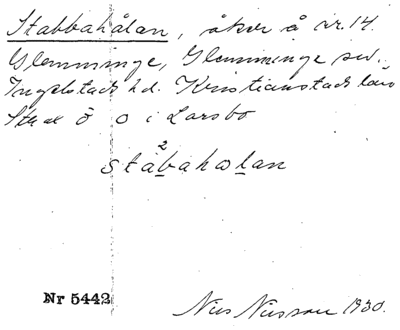 Stabbahålan, åker å nr. 14.
Glemminge, Glemminge sn.
Ingelstads hd. Kristianstads län
ö o i Larsbo
2
stabahålan
Nr 5442
Nils Nilsson 1930.